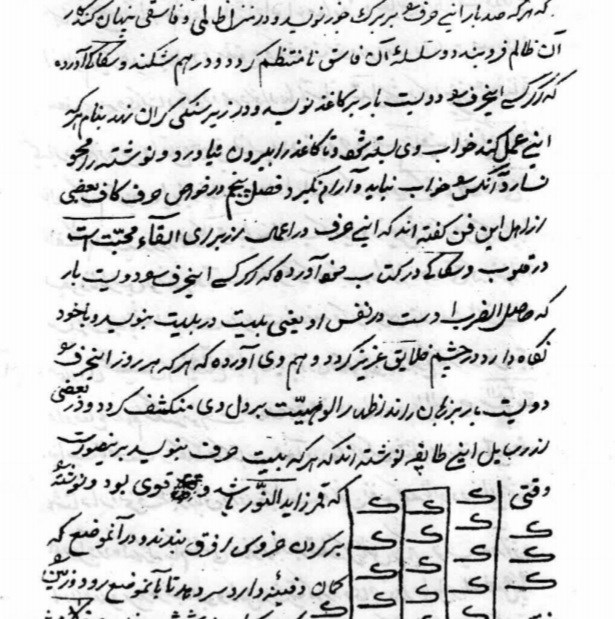 که هرکه صد بار این حرف بر برک خود نویسد و در منزل ظالمی و فاسقی پنهان کند کار
آن ظالم فرو بندد و سلسلهٔ آن فاسق نامنتظم کردد و در هم شکند و سکاکی آورده
که اکر کسی اینحرف دویست بار بر کاغذ نویسد و در زیر سنکی کران نهد بنام هرکه
این عمل کند خواب وی بسته شود تا کاغذ را بیرون نیاورد و نوشته را محو
نسازد آنکس خواب نیابد و آرام نکیرد فصل پنجم در خواص حرف کاف بعضی
از اهل این فن کفته اند که این حرف در اعمال از برای القآء محبت است
در قلوب و سکاکی در کتاب خود آورده که اکر کسی اینحرف دویست بار
که حاصل الضرب است در نفس او یعنی بیست در بیست بنویسد و با خود
نکاه دارد در چشم خلایق عزیز کردد و هم وی آورده که هرکه هر روز اینحرف
دویست بار بر زبان راند اظهار الوهیت بر دل وی منکشف کردد و در بعضی
از رسایل این طایفه نوشته اند که هرکه بیست حرف بنویسد برینصورت
وقتی که قمر زاید النور باشد و قوی بود و نوشته
بر کردن خروس ازرق بندند و در آنموضع که
کمان دفینه دارد سر دهد تا بآنموضع رود و زمین
ک ک ک ک
ک ک ک ک
ک ک ک ک
ک ک ک ک